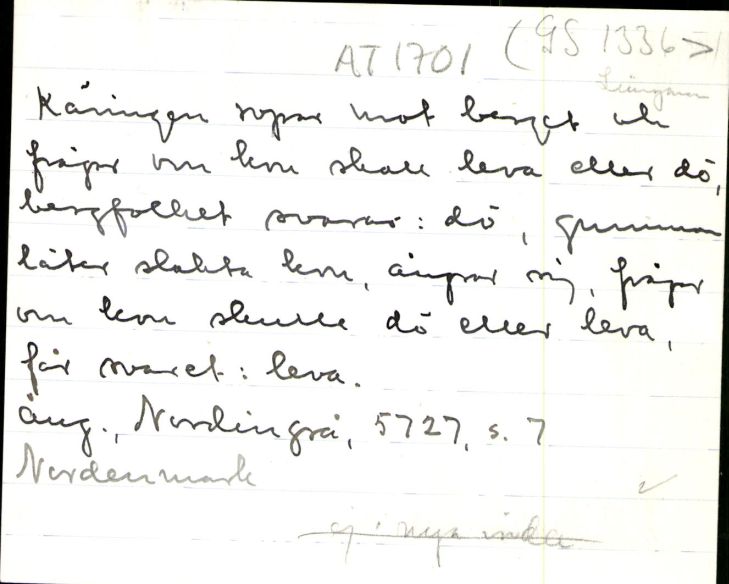 AT 1701 (GS 1336>)
Ljungman
Käringen ropar mot berget och
frågar om kon skall leva eller dö,
bergfolket svarar: dö, gumman
låter slakta kon, ångrar sig, frågar
om kon skulle dö eller leva,
får svaret: leva.
Ång., Nordingrå, 5727, s. 7
Nordenmark
ej i nya